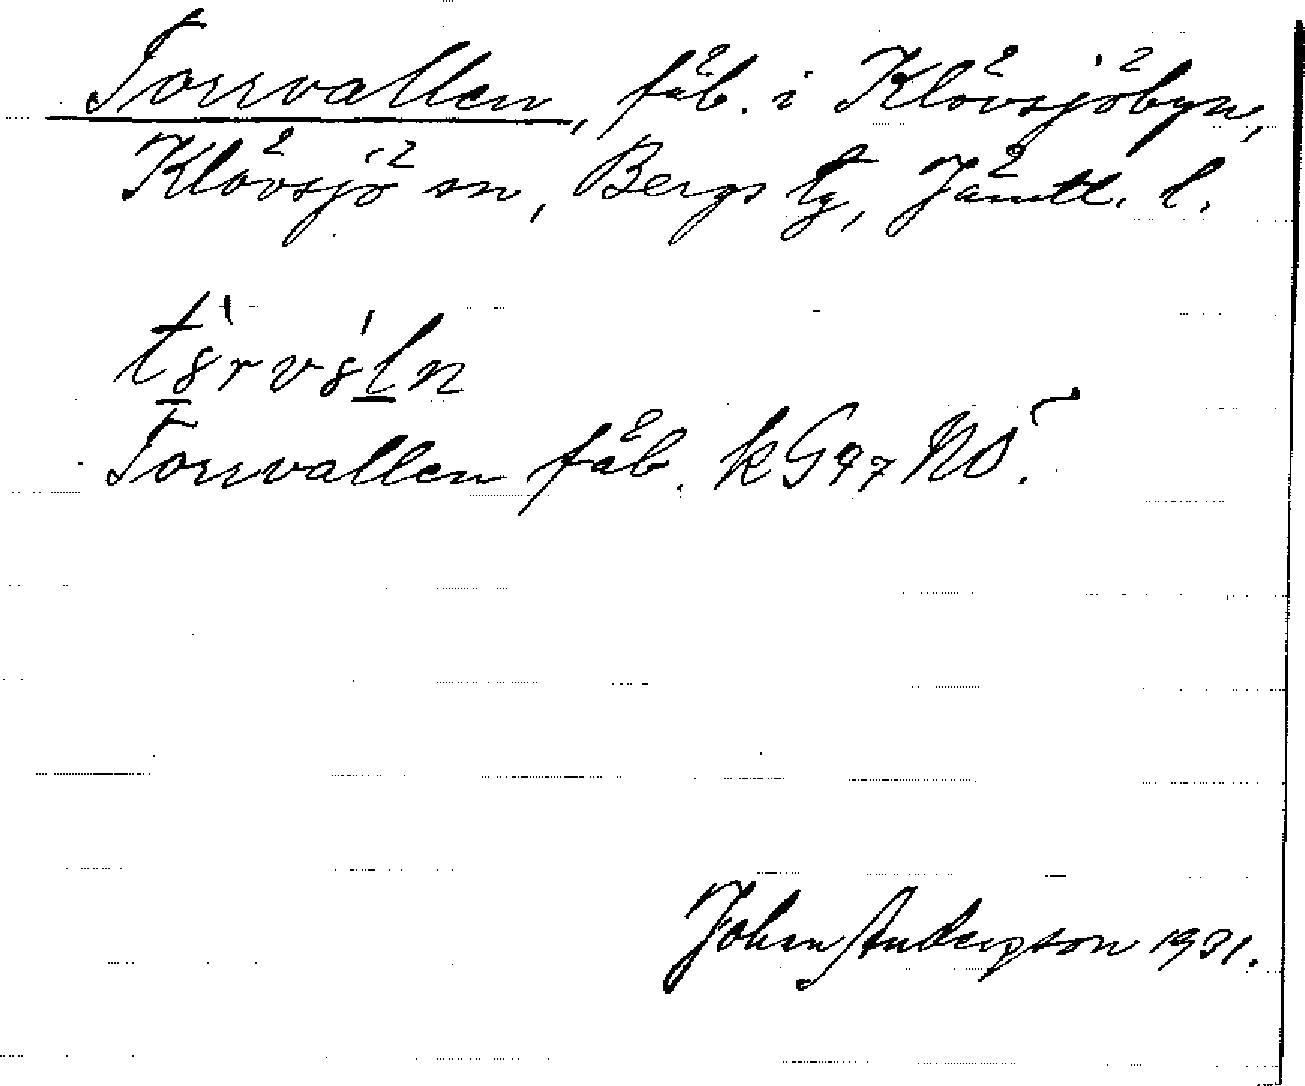 Torrvallen, fäb. i Klövsjöbyn,
Klövsjö sn, Bergs tg, Jämtl. l.
Torrvallen fäb. k G97 NÖ.
John Anderson 1931.